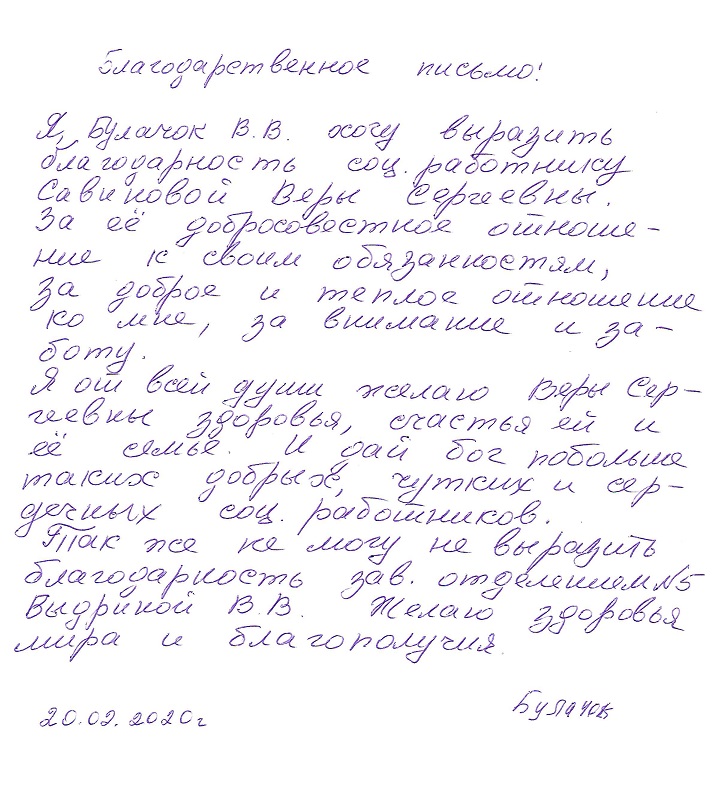 Благодарственное письмо!
Я, Булачок В.В. хочу выразить
благодарность соц. работнику
Савиновой Веры Сергеевны.
За её добросовестное отноше-
ние к своим обязанностям,
за доброе и теплое отношение
ко мне, за внимание и за-
боту.
Я от всей души желаю Веры Сер-
геевны здоровья, счастья ей и
её семье. И дай бог побольше
таких добрых, чутких и сер-
дечных соц. работников.
Так же не могу не выразить
благодарность зав. отделением №5
Выдриной В.В. Желаю здоровья
мира и благополучия.
20.02.2020г
Булачок